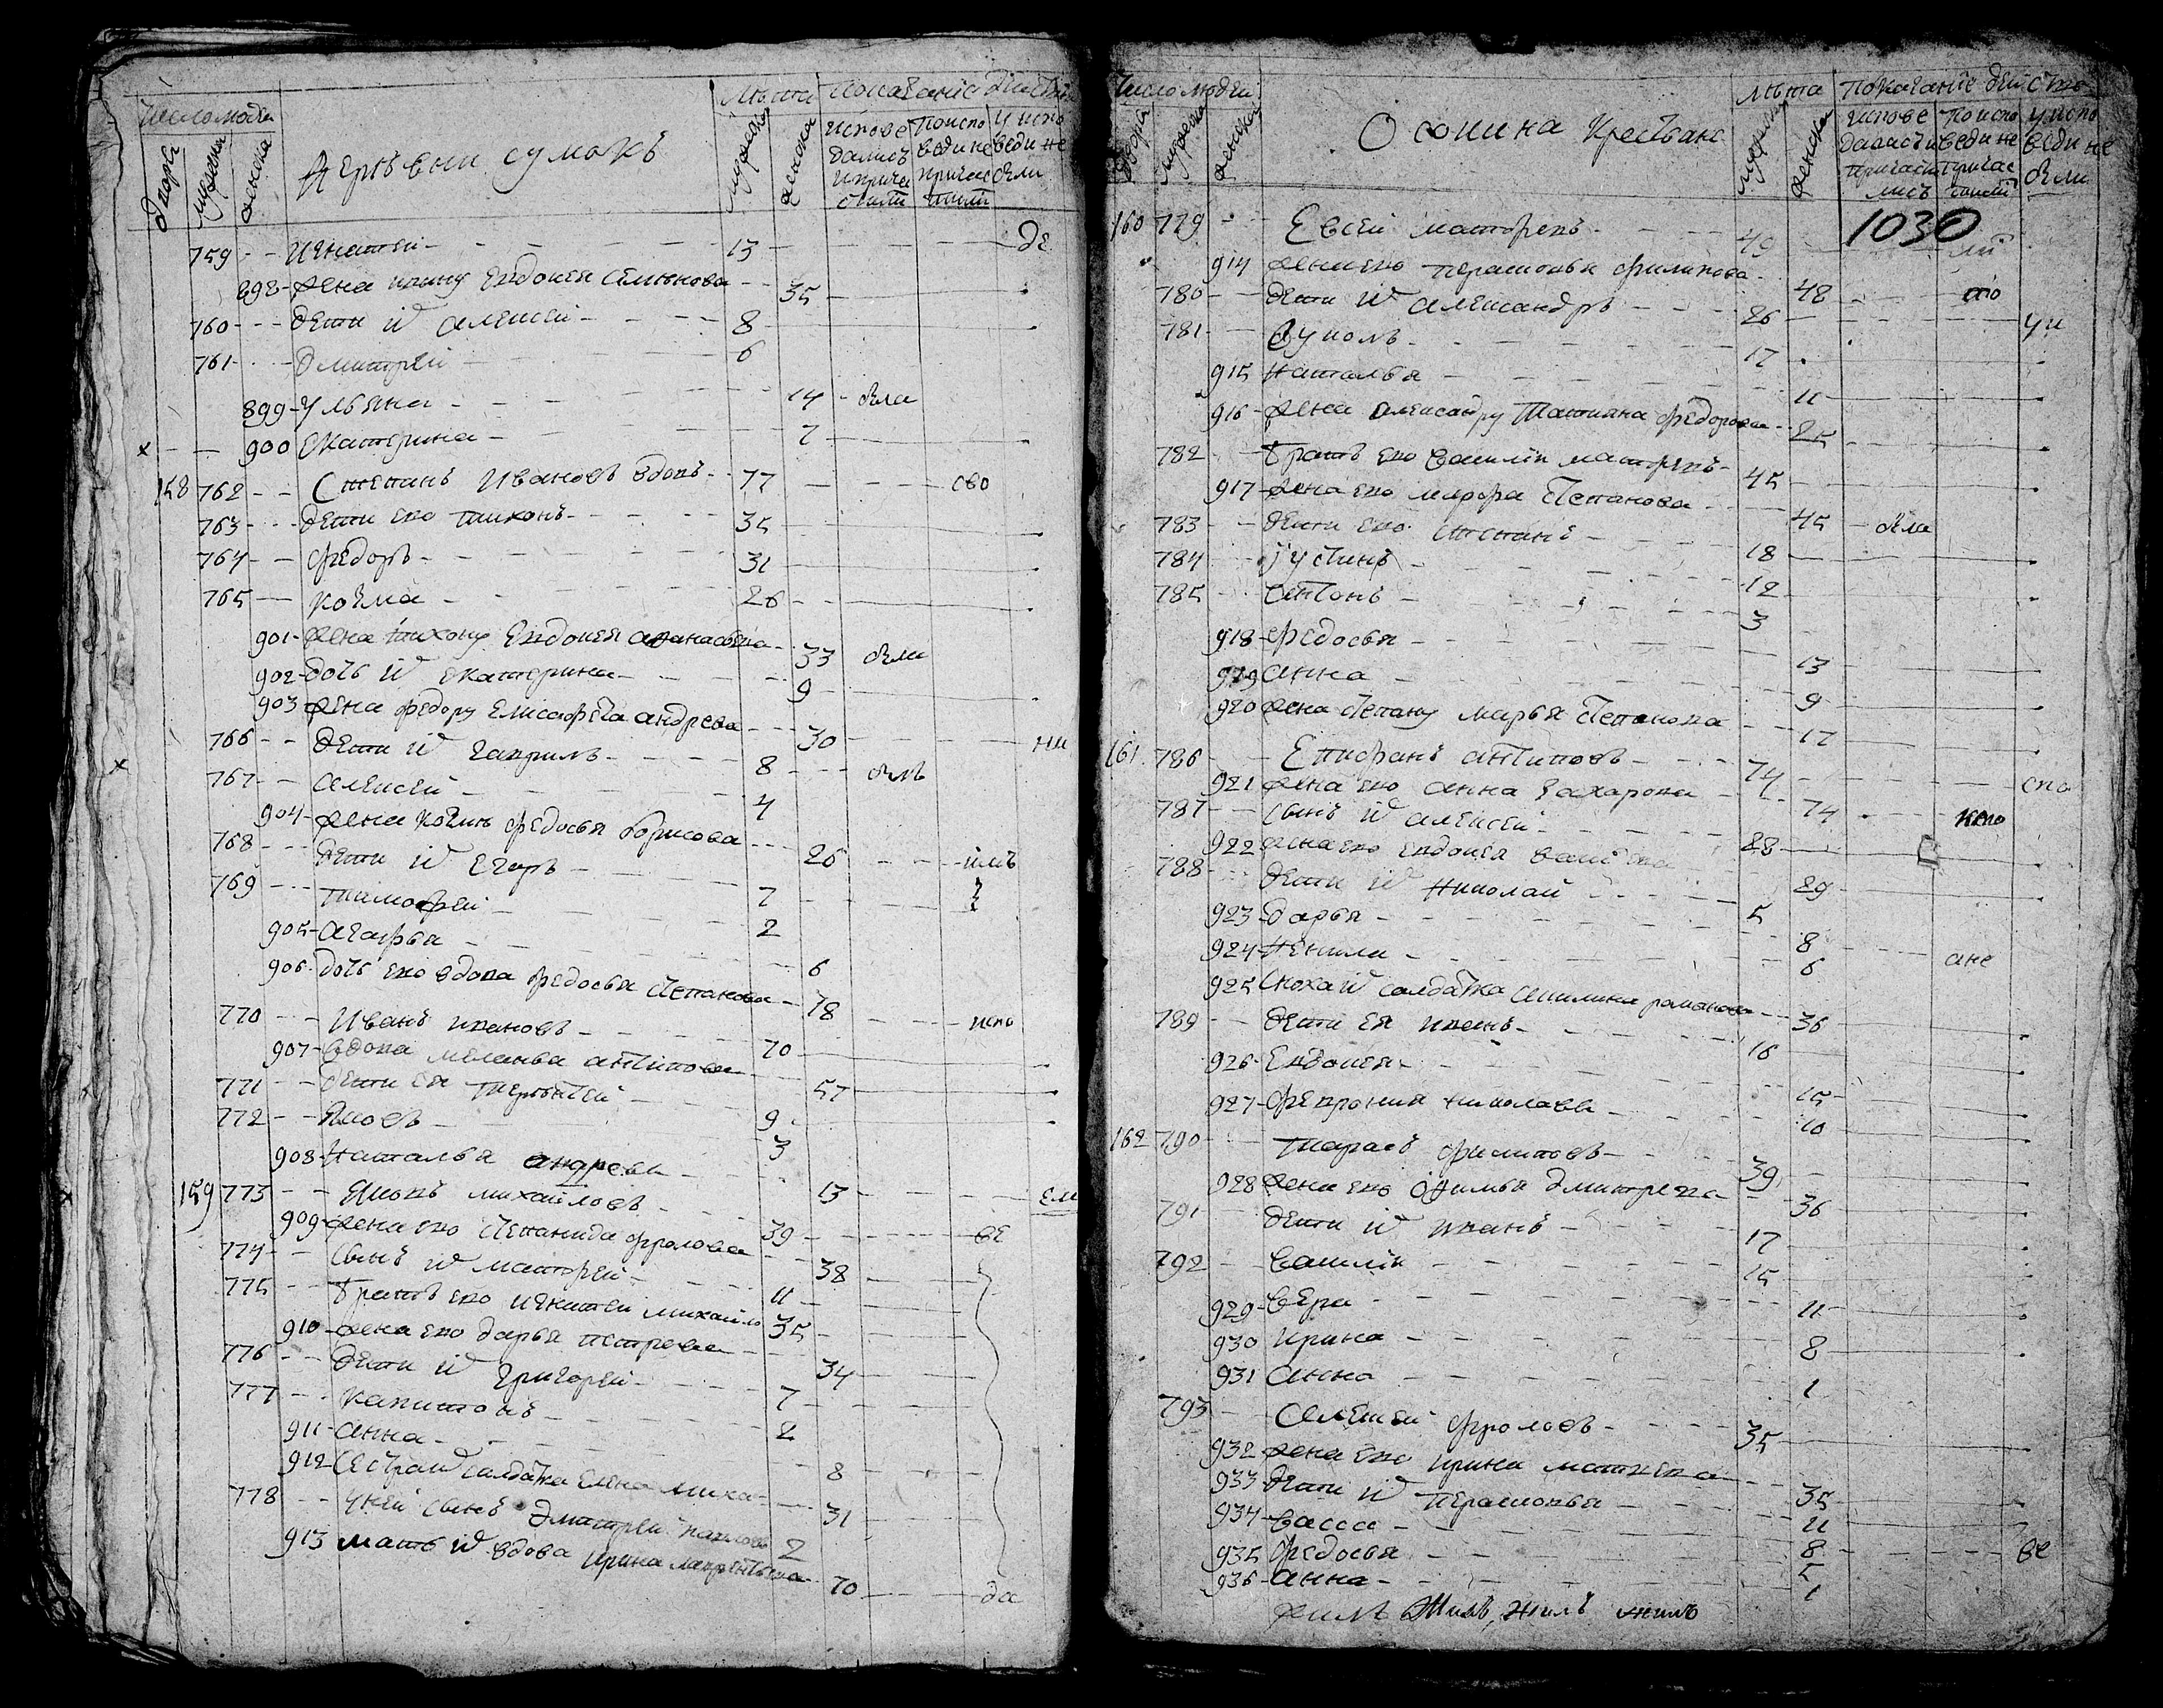 Число людей
Лѣта Показаніе дѣйств
дворы
мужеска
женска
Деревни сумокъ
мужеска
женска
Испове дались и приче стились
По испо веди не причас тились
У испо веди не были
759 Игнатей 13 де
898 жена ивану Евдокея Семенова 35
760 дети их Алексей 8
761 Дмитрей 6
899 Ульяна 14 была
900 Екатерина 7
158 762 Степанъ Ивановъ вдовъ 77 сво
763 дети ево тихонъ 35
764 Федоръ 31
765 козма 26
901 жена тихону Евдокея афанасьева 33 была
902 дочь их екатерина 9
903 жена федору Елисафета андреева 30 ни
766 дети их гаврилъ 8 былъ
767 алексей 4
904 жена козмѣ федосья борисова 26
768 дети их Егоръ 7
769 тимофей 2
905 агафья 6
906 дочь ево вдова федосья степанова 78
770 Иванъ ивановъ 70 испо
907 вдова меланья антипова 57
771 дети ея терентей 9
772 Яковъ 3
908 Наталья андреева 13
159 773 Яковъ михайловъ 39 ели
909 жена ево степанида фролова 38 ве
774 сынъ их матфей 11
775 братъ ево игнатей михайло 35
910 жена ево дарья петрова 34
776 дети их григорей 7
777 капитонъ 2
911 анна 8
912 сестра их салдатка елена миха 31
778 у ней сынъ дмитрей павловъ 2
913 мать их вдова ирина лаврентьева 70 да
Число людей
Лѣта Показаніе дейсте
дворы
мужеска
женска
Осокина крестьяне
мужеска
женска
испове дались и причасти лись
по испо веди не причас тились
у испо веди не были
1030
160 779 Евсей матфеевъ 49 ли
914 жена ево парасковья филипова 48 то
780 дети их александръ 26 чи
781 Вуколъ 17
915 Наталья 11
916 жена александру татиана федорова 25
782 братъ ево василей матфеевъ 45
917 жена ево марфа степанова 45 была
783 дети ево степанъ 18
784 устинъ 12
785 антонъ 3
918 федосья 13
919 анна 9
920 жена степану марья степанова 17
161 786 Епифанъ антиповъ 74 спо
921 жена ево анна захарова 74
787 сынъ их алексей 28
922 жена ево евдокея василева 29
788 дети их николай 5
923 дарья 8
924 ненила 6 ане
925 сноха их салдатка акилина романова 36
789 дети ея иванъ 16
926 Евдокея 15
927 феврония николаева 10
162 790 тарасъ филиповъ 39
928 жена ево офимья дмитреева 36
791 дети их иванъ 17
792 василей 15
929 вера 11
930 ирина 8
931 анна 1
793 алексей фроловъ 35
932 жена ево ирина матвеева 35
933 дети их парасковья 11
934 васса 8 ве
935 федосья 5
936 анна 1
жилъ жилъ, жилъ жилъ